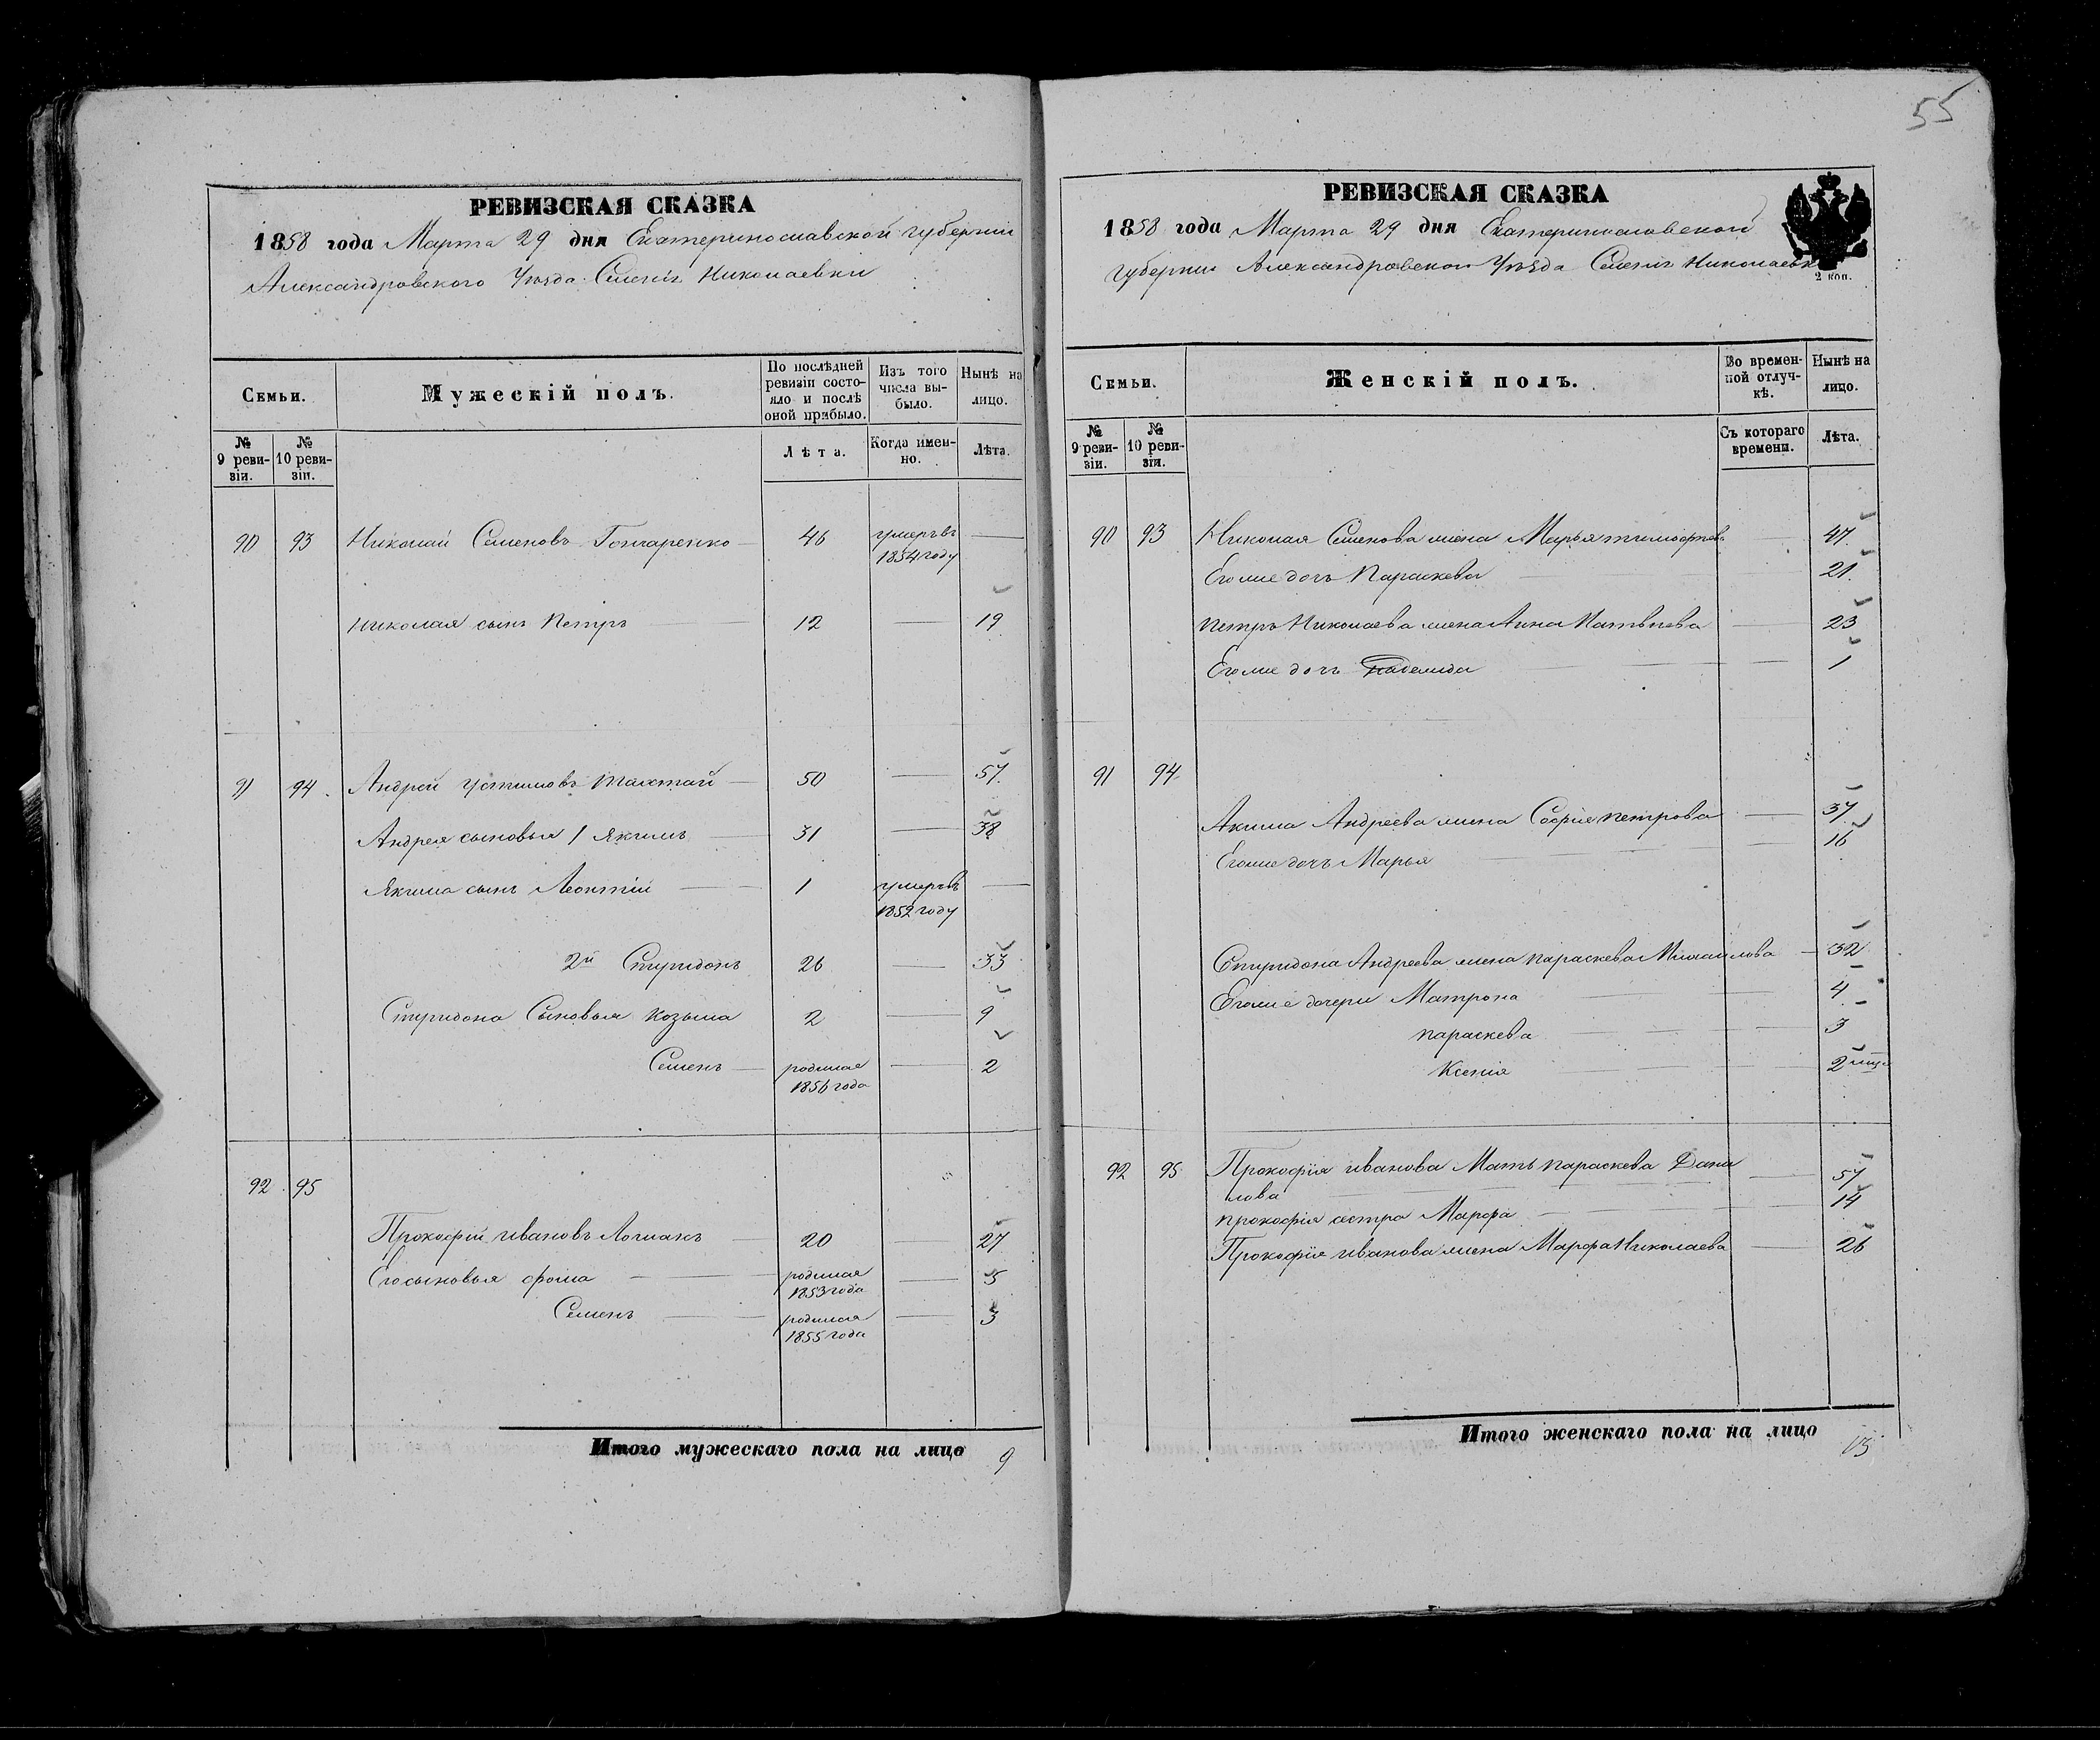 55
РЕВИЗСКАЯ СКАЗКА
1858 года Марта 29 дня Екатеринославской губерніи
Александровского Уѣзда Селенія Николаевки
Семьи.
Мужескій полъ.
По послѣдней ревизіи состояло и послѣ оной прибыло.
Изъ того числа выбыло.
Нынѣ на лицо.
№ 9 ревизіи.
№ 10 ревизіи.
Лѣта.
Когда именно.
Лѣта.
90 93 Николай Семеновъ Гончаренко 46 умеръ въ 1854 году
Николая сынъ Петръ 12 19
91 94 Андрей Устиновъ 50 57
Андрея сыновья 1 Якимъ 31 38
Якима сынъ Леонтій 1 умеръ въ 1852 году
2й Спиридонъ 26 33
Спиридона Сыновья Козьма 2 9
Семенъ родился 1856 года 2
92 95
Прокофій Ивановъ 20 27
Его сыновья фома родился 1853 года 5
Семенъ родился 1855 года 3
Итого мужескаго пола на лицо 9
РЕВИЗСКАЯ СКАЗКА
1858 года Марта 29 дня Екатеринославской
губерніи Александровского Уѣзда Селенія Николаевки
2 коп.
Семьи.
Женскій полъ.
Во временной отлучкѣ.
Нынѣ на лицо.
№ 9 ревизіи.
№ 10 ревизіи.
Съ котораго времени.
Лѣта.
90 93 Николая Семенова жена Марья тимофѣева 47
Его же дочь Параскева 21
Петра Николаева жена Анна Матвѣева 23
Его же дочь 1
91 94
Акима Андреева жена Софія петрова 37
Его же дочь Марья 16
Спиридона Андреева жена параскева Михайлова 32
Его же дочери Матрона 4
параскева 3
Ксенія 2
92 95 Прокофія иванова Мать параскева Дани
лова 57
прокофія сестра Марфа 14
Прокофія иванова жена Марфа Николаева 26
Итого женскаго пола на лицо 13